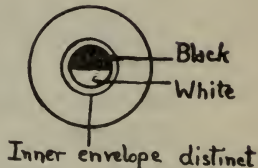 Black
White
Inner envelope distinct